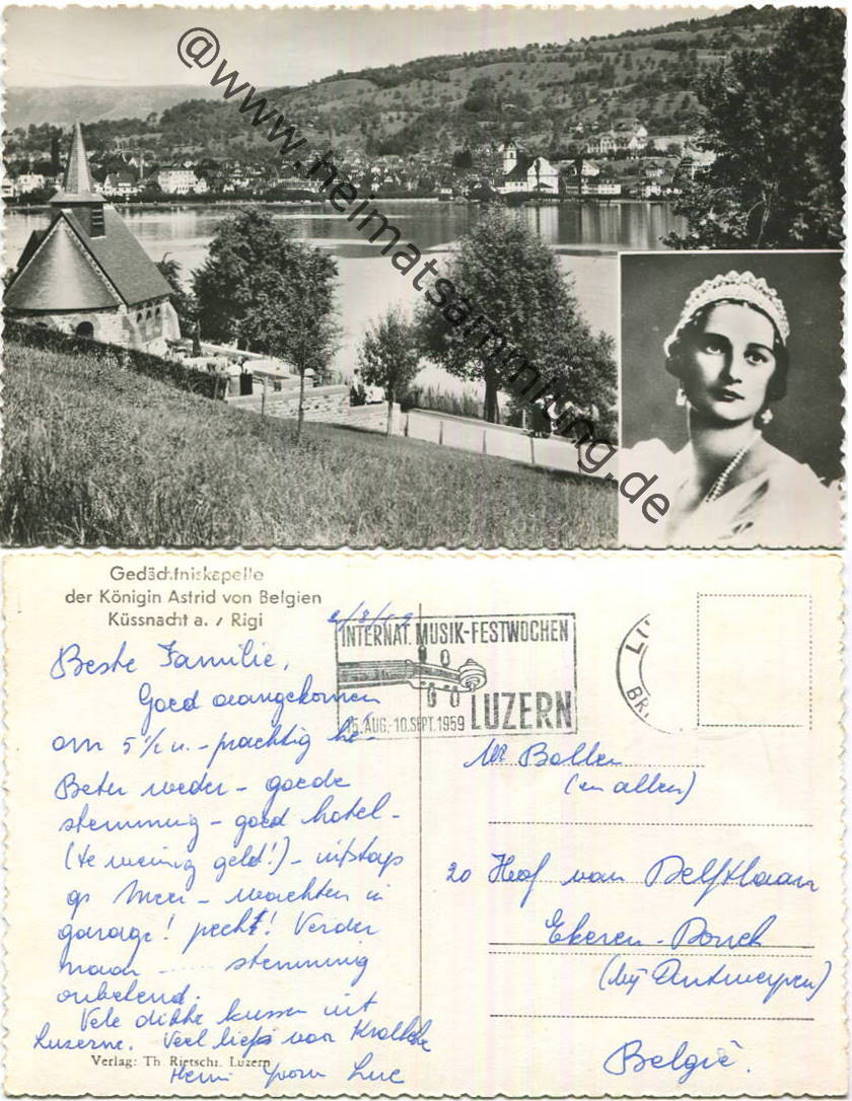 @www.heimatsammlung.de
Gedächtniskapelle
der Königin Astrid von Belgien
Küssnacht a. / Rigi
INTERNAT. MUSIK-FESTWOCHEN
15.AUG.-10.SEPT.1959 LUZERN
Beste Familie,
Goed aangekomen
om 5 ½ u. - prachtig
Beter weder - goede
stemming - goed hotel -
(te weinig geld!) - uitstap
op meer - wachten in
garage! pecht! Verder
naar stemming
onbekend.
Vele dikke kussen uit
Luzerne. Veel liefs van
Verlag: Th. Rietschi, Luzern
Yvonne Luc
Mr Bollen
(en allen)
20 Hof van Delftlaan
Ekeren-Donck
(bij Antwerpen)
België.